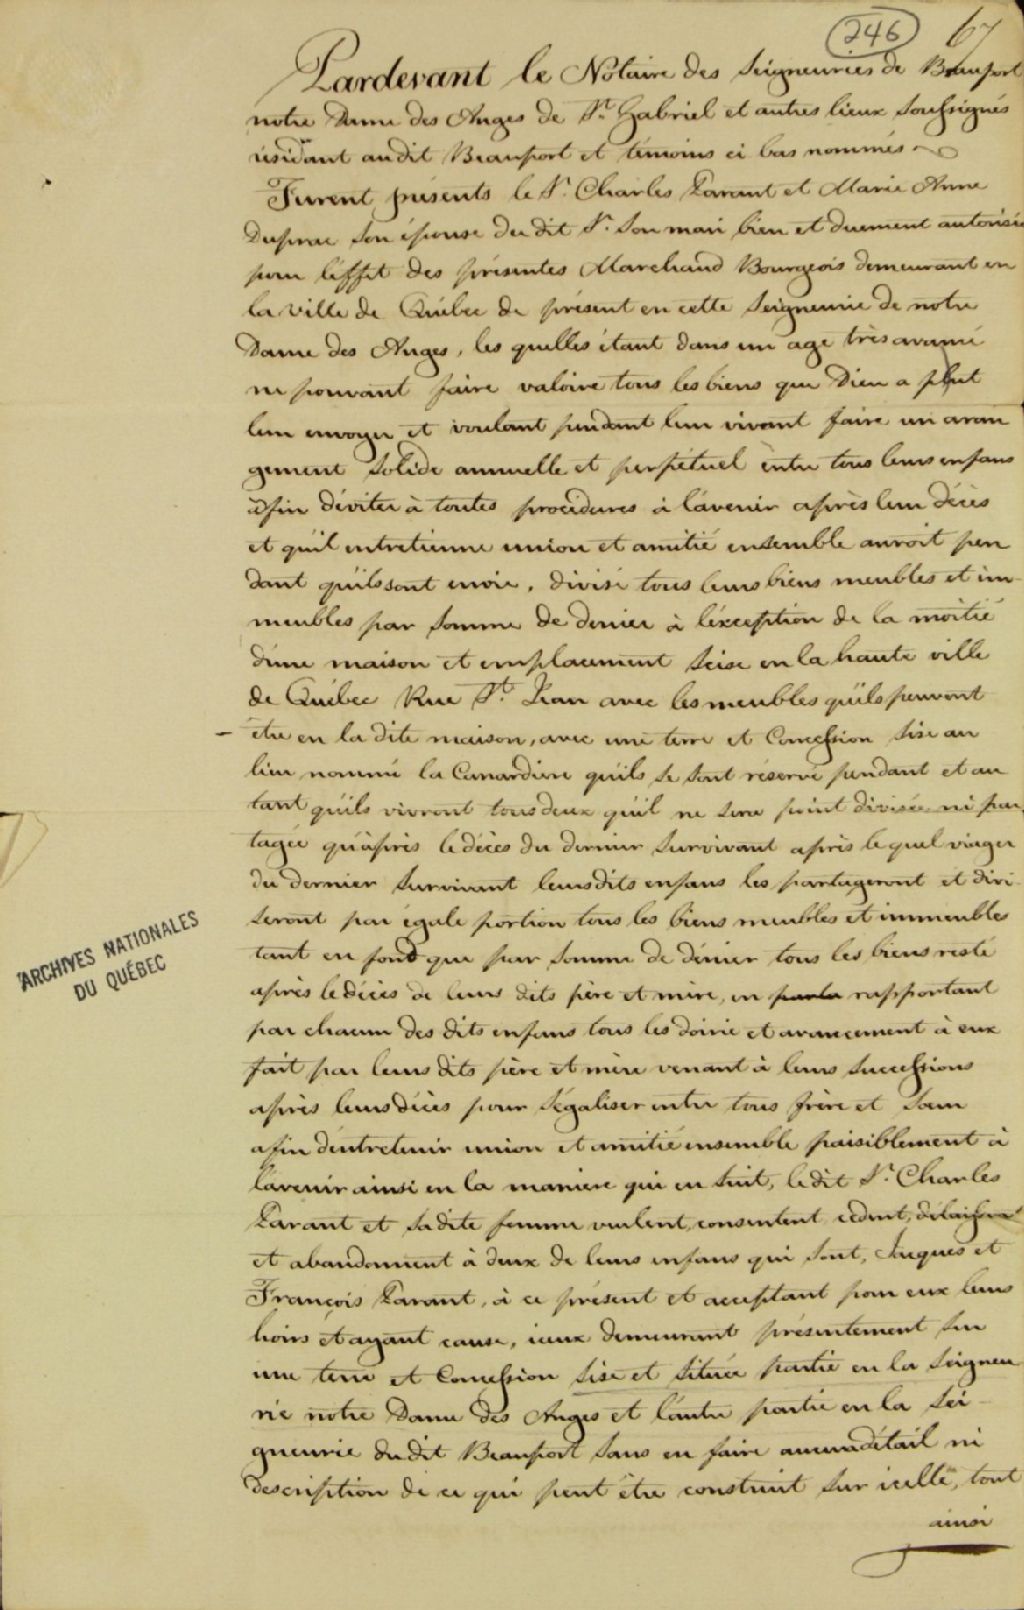 246 67
Pardevant le Notaire des Seigneuries de Beauport
notre Dame des Anges de St. Gabriel et autres lieux Soussignés
résidant audit Beauport et témoins ci bas nommés
Furent présents le Sr. Charles Parant et Marie Anne
Duprac son épouse du dit Sr. Son mari bien et duement autorisée
pour l'éffet des présentes Marchand Bourgeois demeurant en
la ville de Québec de présent en cette Seigneurie de notre
Dame des Anges, les quelles étant dans un age très avancé
ne pouvant faire valoire tous les biens que Dieu a plut
leur envoyer et voulant pendant leur vivant faire un aran
gement Solide annuelle et perpétuel entre tous leurs enfans
afin d'éviter à toutes procédures à l'avenir après leur décès
et qu'il entretienne union et amitié ensemble auroit pen
dant qu'ils sont envie, divisé tous leurs biens meubles et im-
meubles par Somme de denier à l'éxception de la moitié
d'une maison et emplacement Seise en la haute ville
de Québec Rue St. Jean avec les meubles qu'ils peuvent
être en la dite maison, avec une terre et Concession Sise au
lieu nommé la Canardiere qu'ils se sont réservé pendant et au
tant qu'ils vivront tous deux qu'il ne sera point divisée ni par
tagée qu'après le décès du dernier Survivant après le quel viager
du dernier Survivant leurs dits enfans les partageront et divi-
seront par égale portion tous les biens meubles et immeubles
tant en fond que par Somme de dénier tous les biens resté
après le décès de leurs dits père et mère, en rapportant
par chacun des dits enfans tous les doirie et avancement à eux
fait par leurs dits père et mère venant à leurs Successions
après leurs décès pour S'égaliser entre tous frère et Sœur
afin d'entretenir union et amitié ensemble paisiblement à
l'avenir ainsi en la maniere qui en Suit, le dit Sr. Charles
Parant et Sa dite femme veulent, consentent, cedent, délaissent
et abandonnent à deux de leurs enfans qui Sont, Jacques et
François Parant, à ce présent et acceptant pour eux leurs
hoirs et ayant cause, iceux demeurant présentement Sur
une terre et Concession Sise et Située partie en la Seigneu
rie notre Dame des Anges et l'autre partie en la Sei-
gneurie du dit Beauport Sans en faire aucun détail ni
description de ce qui peut être construit Sur icelle, tout
ainsi
ARCHIVES NATIONALES
DU QUÉBEC